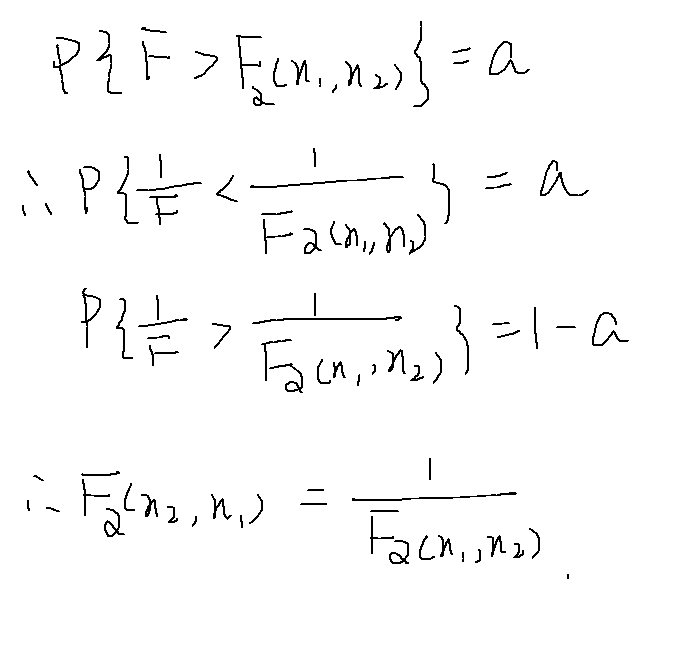 P{F > F₂(n₁, n₂)} = a
∴ P{1/F < 1/F₂(n₁, n₂)} = a
P{1/F > 1/F₂(n₁, n₂)} = 1 - a
∴ F₂(n₂, n₁) = 1/F₂(n₁, n₂).